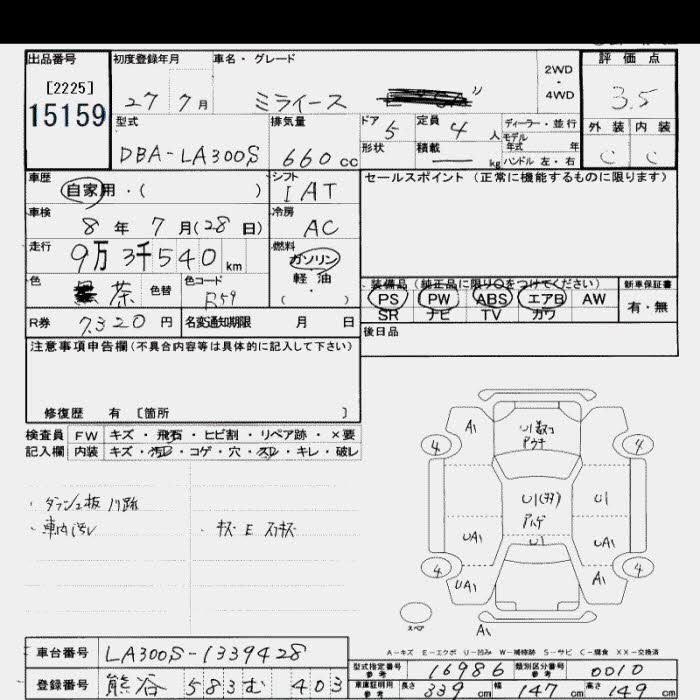 出品番号
[2225]
15159
初度登録年月
27 7月
車名・グレード
ミライース
2WD
・
4WD
評価点
3.5
外装 内装
C C
型式
DBA-LA300S
排気量
660 cc
ドア 5
形状
定員 4 人
積載 — kg
ディーラー・並行
モデル
年式 年
ハンドル 左・右
車歴
自家用・( )
シフト
IAT
セールスポイント(正常に機能するものに限ります)
車検
8年 7月(28日)
冷房
AC
走行
9万3千540 km
燃料
ガソリン
軽油
・
( )
色
茶 色替
色コード
R59
装備品(純正品に限り○をつけてください)
PS PW ABS エアB AW
SR ナビ TV カワ
新車保証書
有・無
R券 7320 円
名変通知期限 月 日
後日品
注意事項申告欄(不具合内容等は具体的に記入して下さい)
修復歴 有 [箇所 ]
検査員 FW キズ・飛石・ヒビ割・リペア跡・×要
記入欄 内装 キズ・汚レ・コゲ・穴・スレ・キレ・破レ
・車内汚レ
A1
4
4
U1
UA1
UA1
4
4
UA1
A1
A1
スペア
A-キズ E-エクボ U-凹み W-補修跡 S-サビ C-腐食 XX-交換済
車台番号 LA300S-1339428
登録番号 熊谷 583む 403
型式指定番号 参考 16986 類別区分番号 参考 0010
車庫証明用 参考 長さ 339 cm 幅 147 cm 高さ 149 cm